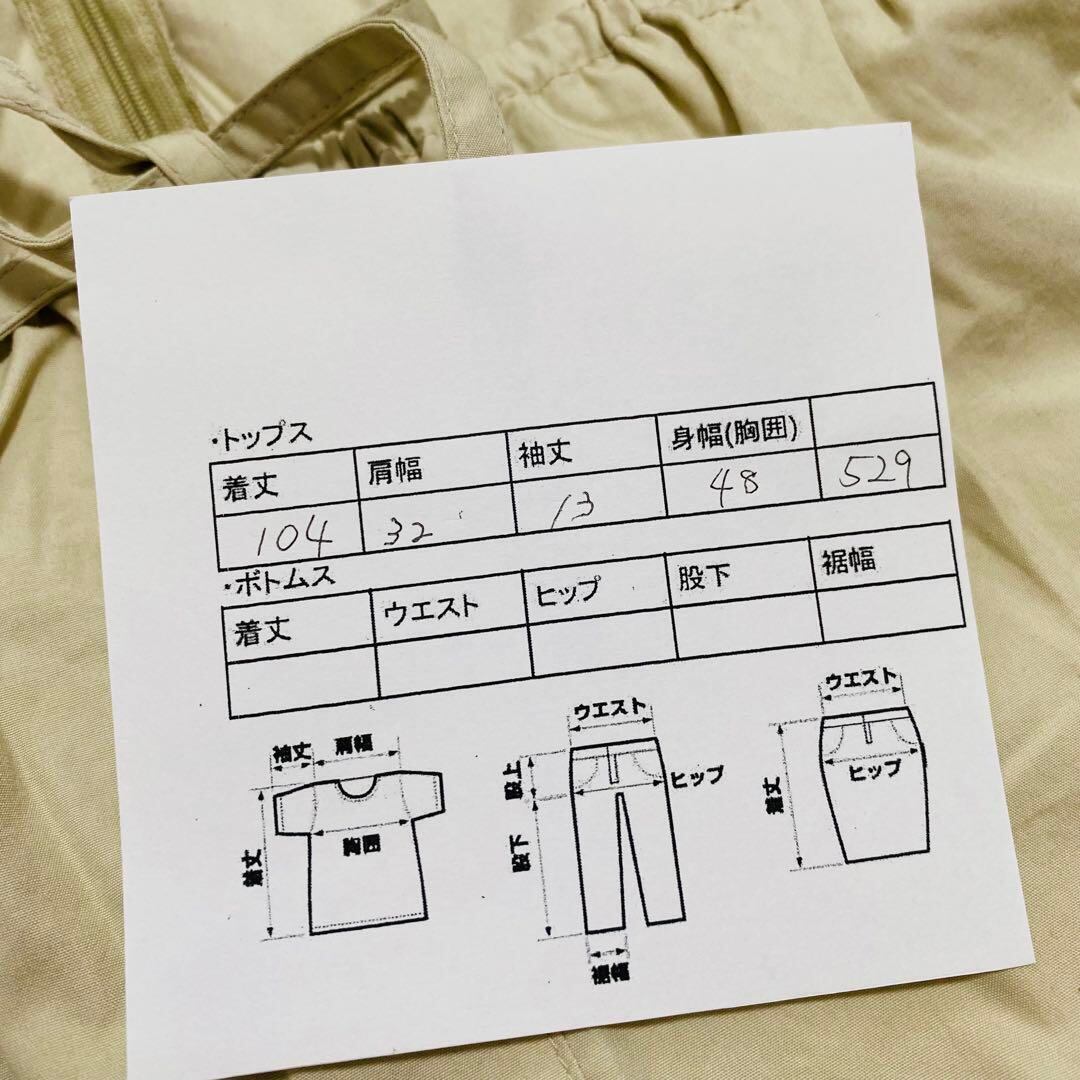 ・トップス
着丈 肩幅 袖丈 身幅(胸囲)
104 32 13 48 529
・ボトムス
着丈 ウエスト ヒップ 股下 裾幅
袖丈 肩幅
着丈
胸囲
ウエスト
股上
ヒップ
股下
裾幅
ウエスト
ヒップ
着丈